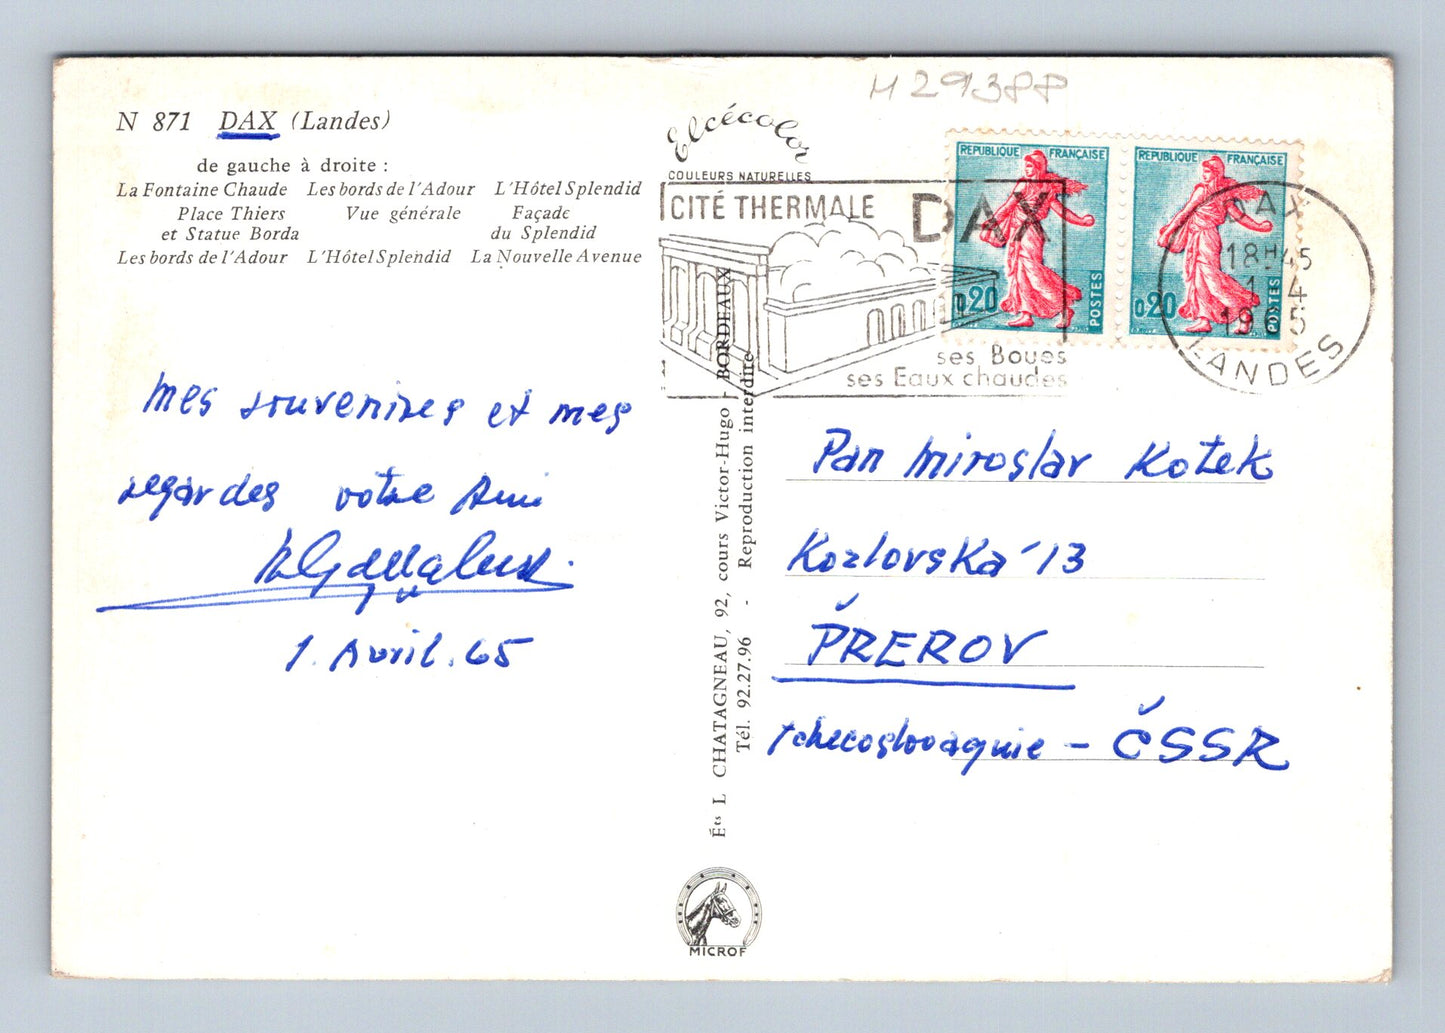 M 29388
N 871 DAX (Landes)
de gauche à droite :
La Fontaine Chaude Les bords de l'Adour L'Hôtel Splendid
Place Thiers Vue générale Façade
et Statue Borda du Splendid
Les bords de l'Adour L'Hôtel Splendid La Nouvelle Avenue
Elcécolor
COULEURS NATURELLES
CITÉ THERMALE DAX
ses Boues
ses Eaux chaudes
REPUBLIQUE FRANÇAISE
0,20
POSTES
REPUBLIQUE FRANÇAISE
0,20
POSTES
DAX
18H45
1 4
1965
LANDES
Mes souvenires et mes
regardes votre Ami
1. Avril. 65
Éts L CHATAGNEAU, 92, cours Victor-Hugo - BORDEAUX
Tél. 92.27.96 - Reproduction interdite
Pan Miroslav Kotek
Kozlovska 13
PŘEROV
Tchecoslovaquie - ČSSR
MICROF